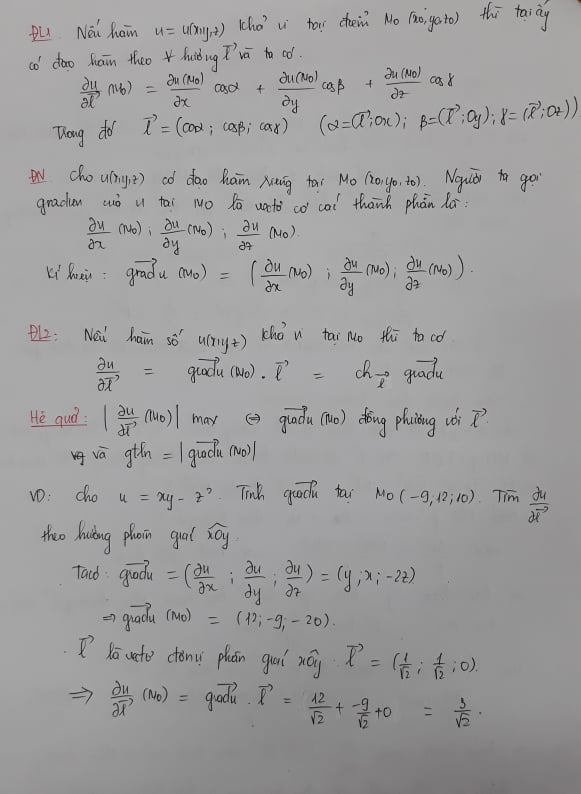 ĐL1 Nếu hàm u = u(x,y,z) khả vi tại điểm Mo (xo,yo,zo) thì tại ấy
có đạo hàm theo ∀ hướng l⃗ và ta có.
∂u/∂l⃗ (Mo) = ∂u(Mo)/∂x cosα + ∂u(Mo)/∂y cosβ + ∂u(Mo)/∂z cosγ
Trong đó l⃗ = (cosα; cosβ; cosγ) (α=(l⃗;Ox); β=(l⃗;Oy); γ=(l⃗;Oz))
ĐN. Cho u(x,y,z) có đạo hàm riêng tại Mo (xo,yo,zo). Người ta gọi
gradien của u tại Mo là vectơ có các thành phần là:
∂u/∂x (Mo); ∂u/∂y (Mo); ∂u/∂z (Mo).
Kí hiệu: gradu (Mo) = (∂u/∂x (Mo); ∂u/∂y (Mo); ∂u/∂z (Mo)).
ĐL2: Nếu hàm số u(x,y,z) khả vi tại Mo thì ta có
∂u/∂l⃗ = gradu (Mo) . l⃗ = ch l⃗ gradu
Hệ quả: |∂u/∂l⃗ (Mo)| max ⇔ gradu (Mo) đồng phương với l⃗
và gtln = |gradu (Mo)|
VD: cho u = xy - z². Tính gradu tại Mo (-9,12,10). Tìm ∂u/∂l⃗
theo hướng phân giác xOy.
Ta có: gradu = (∂u/∂x; ∂u/∂y; ∂u/∂z) = (y; x; -2z)
⇒ gradu (Mo) = (12; -9; -20).
. l⃗ là vectơ đơn vị phân giác xOy. l⃗ = (1/√2; 1/√2; 0).
⇒ ∂u/∂l⃗ (Mo) = gradu . l⃗ = 12/√2 + -9/√2 + 0 = 3/√2.